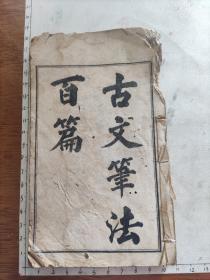 古文筆法
百篇